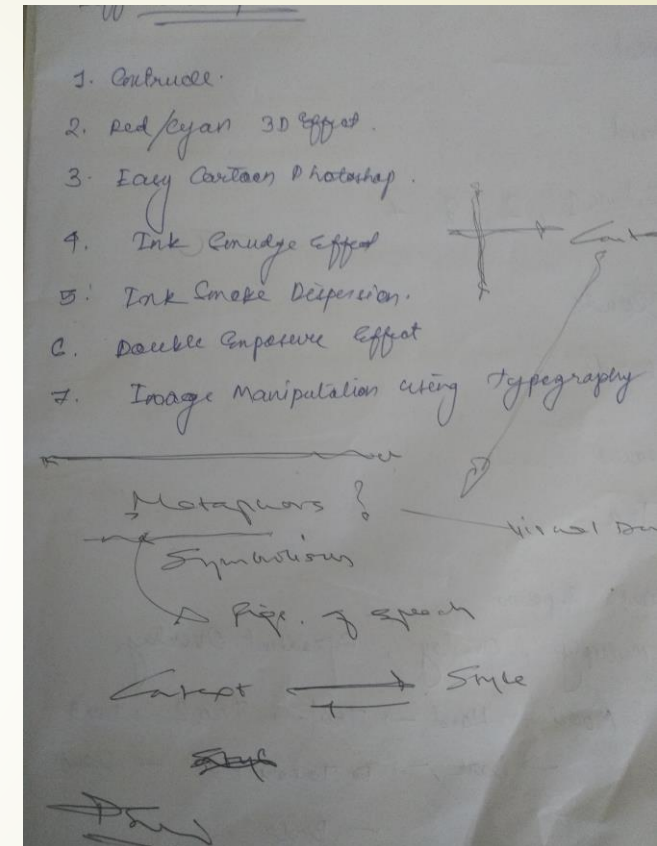 1. 
2. Red/Cyan 3D Effect.
3. Easy Cartoon Photoshop.
4. Ink Smudge Effect
5. Ink Smoke Dispersion.
6. Double Exposure Effect
7. Image Manipulation using Typography
Metaphors ?
Visual
Symbolisms
Figs. of speech
Context
Style